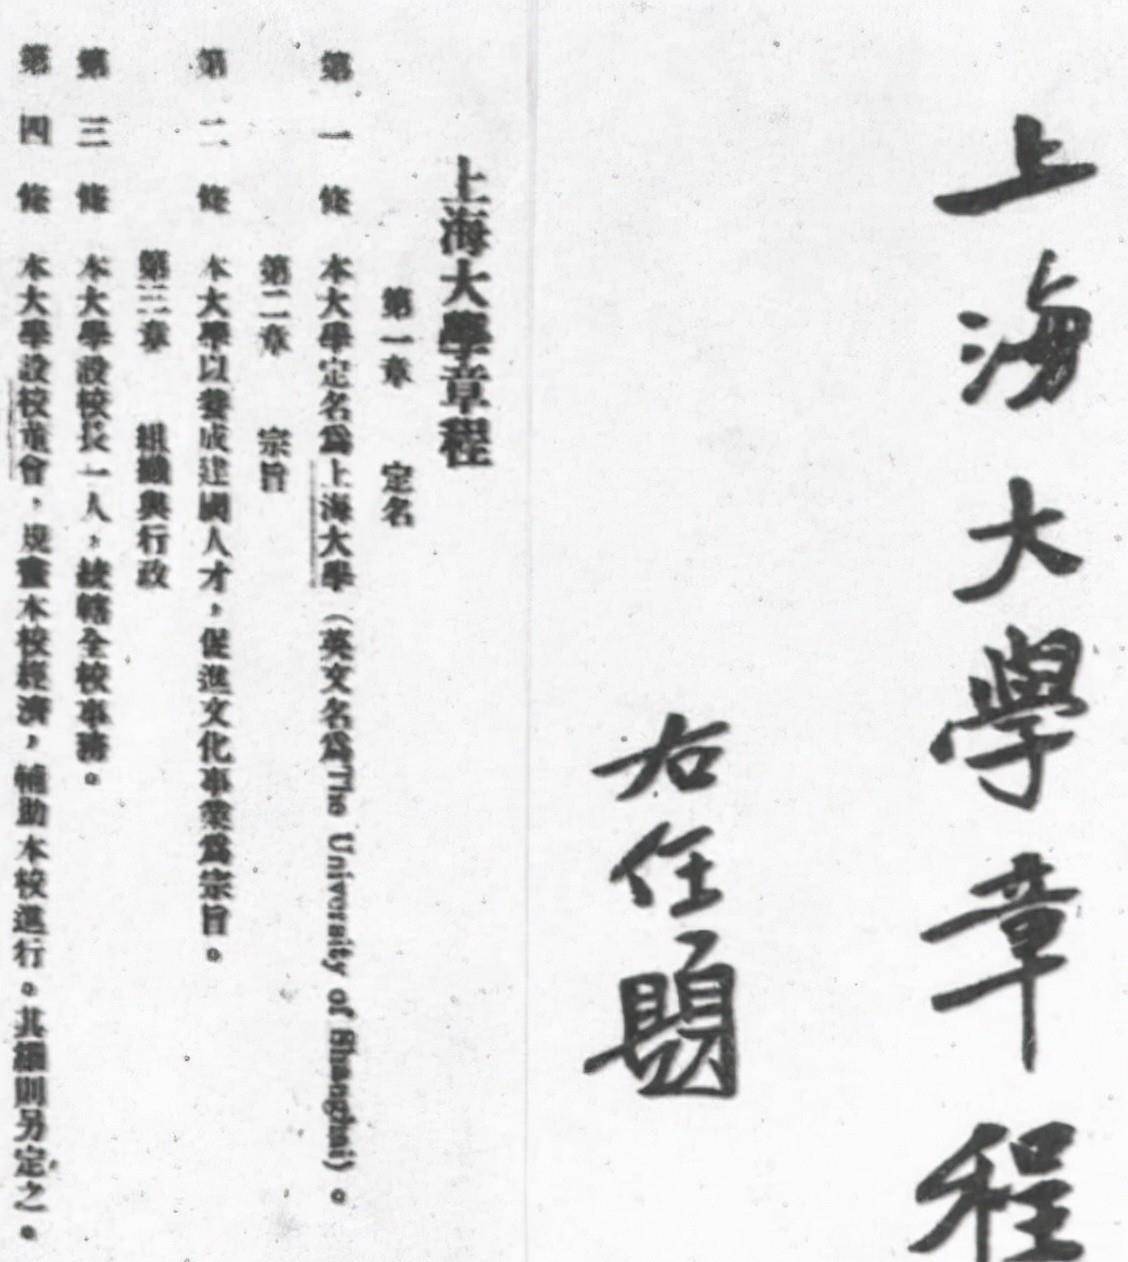 上海大學章程
右任題
上海大學章程
第一章 定名
第一條 本大學定名為上海大學（英文名為The University of Shanghai）。
第二章 宗旨
第二條 本大學以養成建國人才，促進文化事業為宗旨。
第三章 組織與行政
第三條 本大學設校長一人，統轄全校事務。
第四條 本大學設校董會，規畫本校經濟，輔助本校進行。其細則另定之。